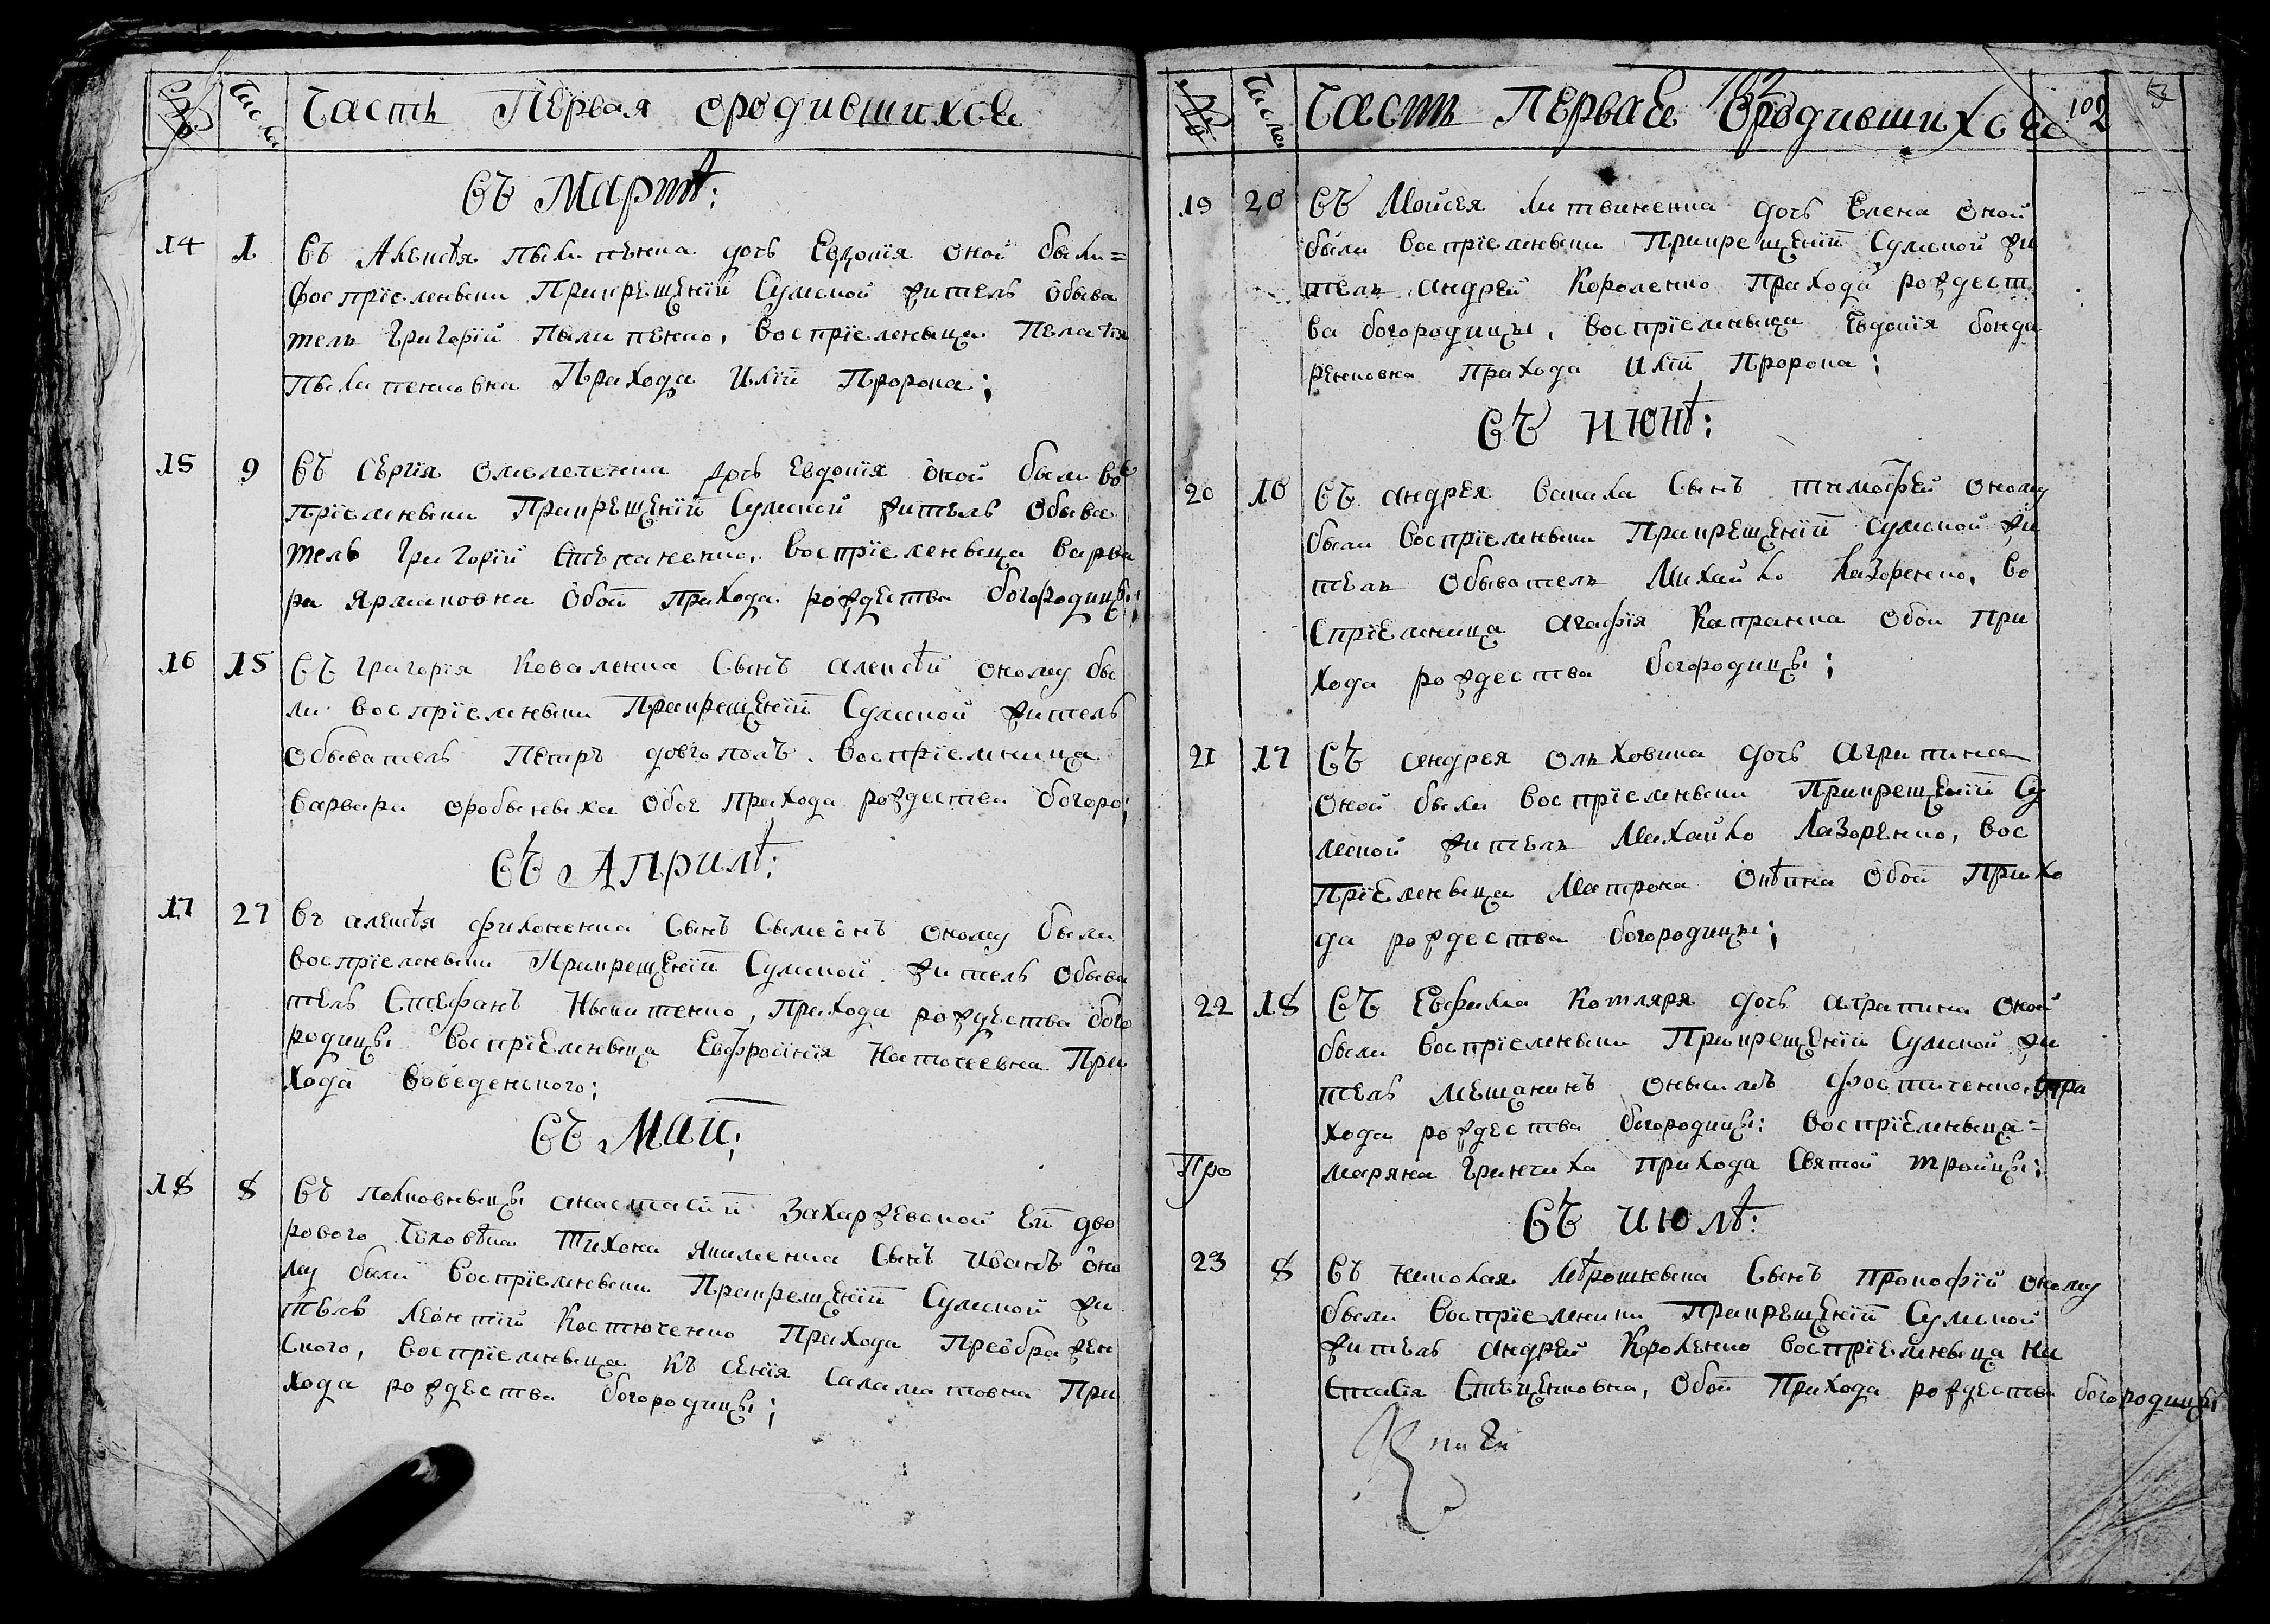 Числа Часть Первая ородившихся
Въ Мартѣ:
14 1 Въ Алексѣя пылипенка дочь Евдокія оной были=
воспріемныки Прикрещеніи Сумской житель обыва
тель Григорій Пылипенко, воспріемныца Пелагія
Пылипенковна Прихода Иліи Пророка;
15 9 Въ Сергія дочь Евдокія оной были вос
пріемныки Прикрещеніи Сумской житель обыва
тель Григорій Степаненко, воспріемныца Варва
ра Ярмаковна обои прихода рождества богородицы;
16 15 Въ Григорія Коваленка Сынъ алексѣй оному бы
ли воспріемныки Прикрещеніи Сумской житель
обыватель Петръ довгополъ, воспріемница
варвара обое прихода рождества богоро;
Въ Априлѣ:
17 27 Въ алексѣя филоненка Сынъ Сымеонъ оному были
воспріемныки Прикрещеніи Сумской житель обыва
тель Стефанъ Ныкитенко, Прихода рождества бого
родицы воспріемныца Евфросинія При
хода введенского;
Въ Маи;
18 8 Въ полковныцы анастасіи Захаржевской Еи дво
рового человѣка Тихона якименка Сынъ иванъ оно
му были воспріемныки Прикрещеніи Сумской жи
тель Леонтій Костюченко Прихода Преображен
ского, воспріемныца Ксенія Саламатовна При
хода рождества богородицы;
Числа Часть Первая ородившихся 102
19 20 Въ Мойсея литвиненка дочь Елена оной
были воспріемныки Прикрещеніи Сумской жи
тель андрей Короленко Прихода рождест
ва богородицы, воспріемныца Евдокія бонда
ренковна прихода Иліи Пророка;
Въ июнѣ:
20 10 Въ андрея Сынъ тимофей оному
были воспріемныки Прикрещеніи Сумской жи
тель обыватель Михайло Лазоренко, во
спріемница агафія Капранка обои При
хода рождества богородицы;
21 17 Въ андрея ольховика дочь агрипина
оной были воспріемныки Прикрещеніи Су
мской житель Михайло Лазоренко, вос
пріемныца Матрона обои Прихо
да рождества богородицы;
22 18 Въ Евфима Котляря дочь аграпина оной
были воспріемныки Прикрещеніи Сумской жи
тель мещанинъ онысимъ при
хода рождества богородицы: воспріемныца=
маряна Гринчиха прихода Святой тройцы;
Про
Въ июлѣ:
23 8 Въ николая Мѣрошныка Сынъ прокофій оному
были воспріемники Прикрещеніи Сумской
житель андрей Кроленко воспріемныца на
стасія Стеценковна, обои Прихода рождества богородицы